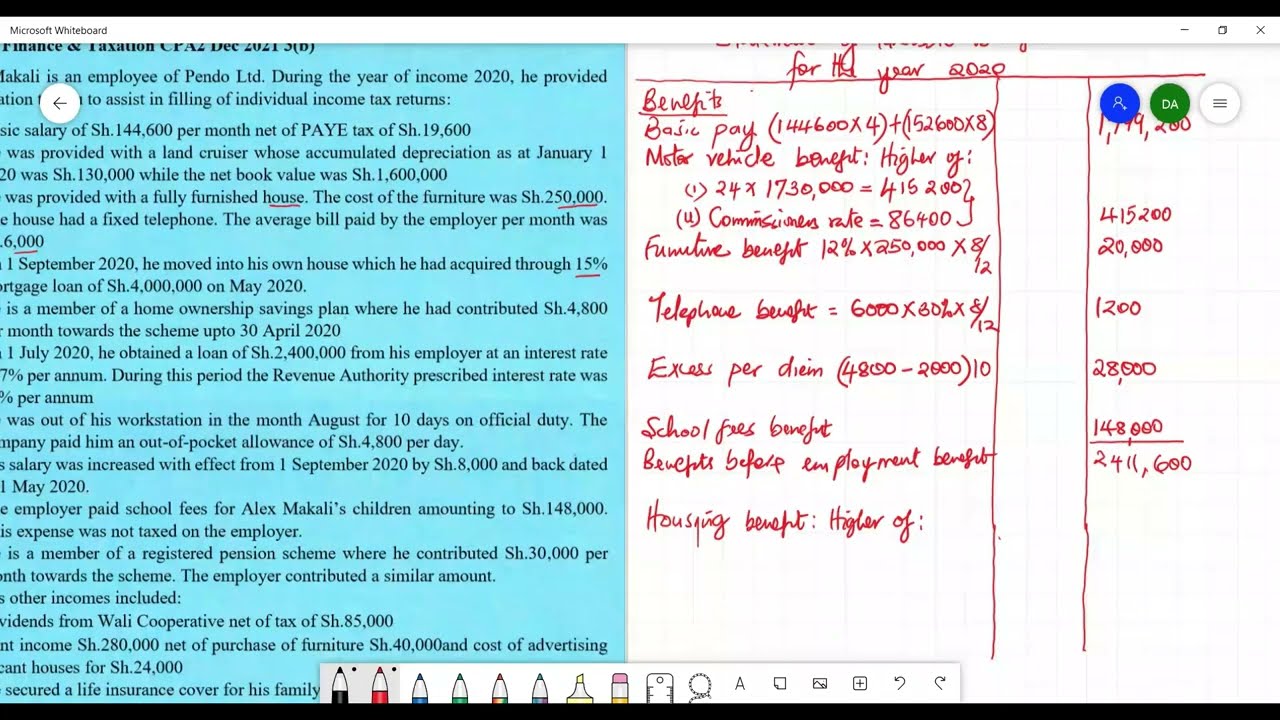 Microsoft Whiteboard
Finance & Taxation CPA2 Dec 2021 3(b)
Makali is an employee of Pendo Ltd. During the year of income 2020, he provided
to assist in filling of individual income tax returns:
sic salary of Sh.144,600 per month net of PAYE tax of Sh.19,600
was provided with a land cruiser whose accumulated depreciation as at January 1
20 was Sh.130,000 while the net book value was Sh.1,600,000
was provided with a fully furnished house. The cost of the furniture was Sh.250,000.
e house had a fixed telephone. The average bill paid by the employer per month was
.6,000
1 September 2020, he moved into his own house which he had acquired through 15%
ortgage loan of Sh.4,000,000 on May 2020.
is a member of a home ownership savings plan where he had contributed Sh.4,800
r month towards the scheme upto 30 April 2020
1 July 2020, he obtained a loan of Sh.2,400,000 from his employer at an interest rate
7% per annum. During this period the Revenue Authority prescribed interest rate was
% per annum
was out of his workstation in the month August for 10 days on official duty. The
mpany paid him an out-of-pocket allowance of Sh.4,800 per day.
s salary was increased with effect from 1 September 2020 by Sh.8,000 and back dated
1 May 2020.
e employer paid school fees for Alex Makali's children amounting to Sh.148,000.
is expense was not taxed on the employer.
is a member of a registered pension scheme where he contributed Sh.30,000 per
onth towards the scheme. The employer contributed a similar amount.
s other incomes included:
vidends from Wali Cooperative net of tax of Sh.85,000
nt income Sh.280,000 net of purchase of furniture Sh.40,000and cost of advertising
cant houses for Sh.24,000
secured a life insurance cover for his family
for the year 2020
Benefits
Basic pay (144600 x 4)+(152600x8) 1,799,200
Motor vehicle benefit: Higher of:
(i) 24 x 1730,000 = 415200
(ii) Commissioners rate = 86400 415200
Furniture benefit 12% x 250,000 x 8/12 20,000
Telephone benefit = 6000 x 30% x 8/12 1200
Excess per diem (4800 - 2000)10 28,000
School fees benefit 148,000
Benefits before employment benefit 2411,600
Housing benefit: Higher of:
DA
A